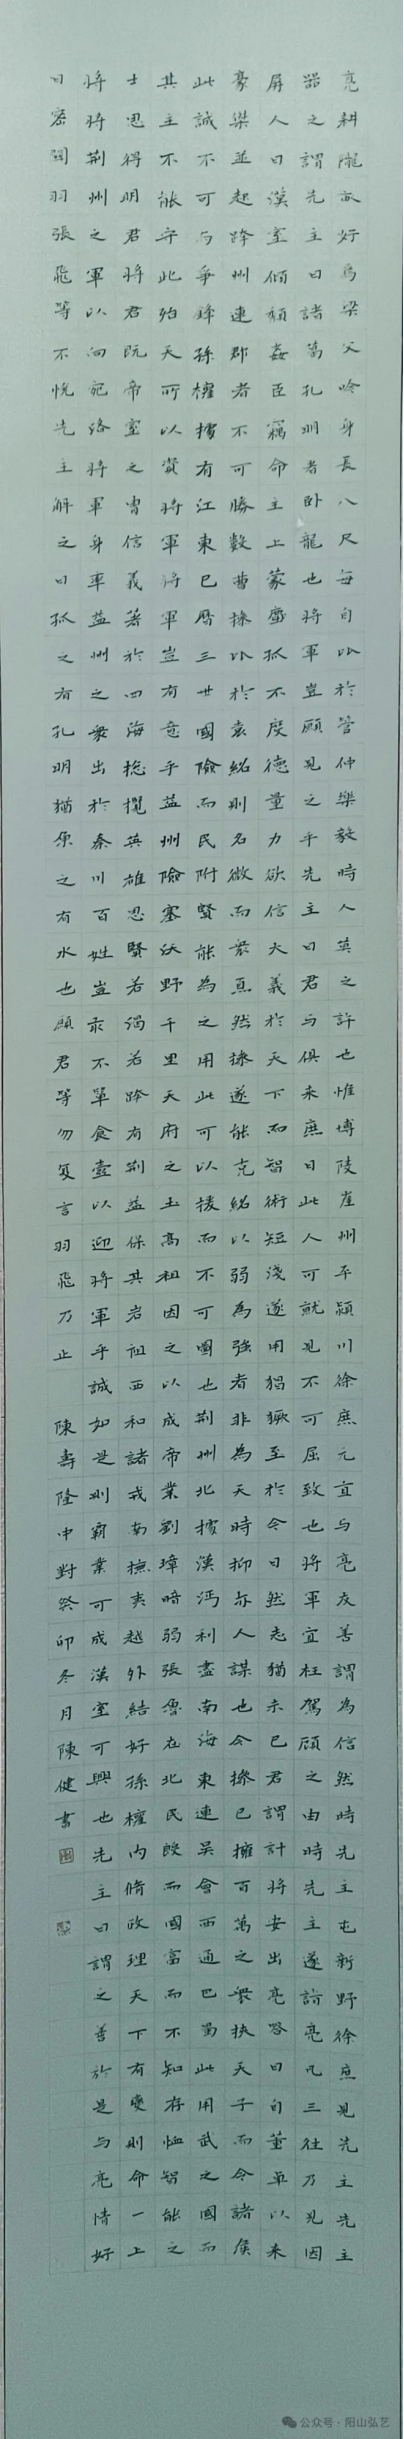 亮耕隴畝好為梁父吟身長八尺每自比於管仲樂毅時人莫之許也惟博陵崖州平潁川徐庶元直与亮友善謂為信然時先主屯新野徐庶見先主先主
器之謂先主曰諸葛孔明者卧龍也將軍豈願見之乎先主曰君与俱来庶曰此人可就見不可屈致也將軍宜枉駕顧之由時先主遂詣亮凡三往乃見因
屏人曰漢室傾頹姦臣竊命主上蒙塵孤不度德量力欲信大義於天下而智術短淺遂用猖獗至於今日然志猶未已君謂計將安出亮答曰自董卓以来
豪桀並起跨州連郡者不可勝數曹操比於袁紹則名微而衆寡然操遂能克紹以弱為強者非為天時抑亦人謀也今操已擁百萬之衆挾天子而令諸侯
此誠不可与爭鋒孫權據有江東已曆三世國險而民附賢能為之用此可以援而不可圖也荆州北據漢沔利盡南海東連吴會西通巴蜀此用武之國而
其主不能守此殆天所以資將軍將軍豈有意乎益州險塞沃野千里天府之土高祖因之以成帝業劉璋暗弱張魯在北民殷而國富而不知存恤智能之
士思得明君將君既帝室之胄信義著於四海捴攬英雄思賢若渴若跨有荆益保其岩阻西和諸戎南撫夷越外結好孫權內脩政理天下有變則命一上
將將荆州之軍以向宛洛將軍身率益州之衆出於秦川百姓豈敢不單食壺以迎將軍乎誠如是則霸業可成漢室可興也先主曰謂之善於是与亮情好
日密關羽張飛等不悅先主解之曰孤之有孔明猶原之有水也願君等勿复言羽飛乃止 陳壽隆中對癸卯冬月陳健書
公众号·阳山弘艺